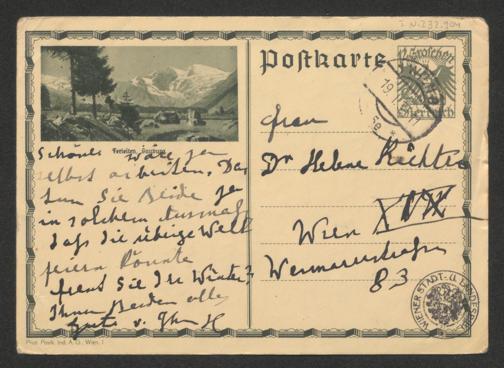 I.N. 232.904
Postkarte
12 Groschen
Österreich
WIEN
19.
Ferleiten, Salzburg
Schöner wäre ja
selbst arbeiten, Das
tun Sie Beide ja
in solchem Ausmaß
daß die übrige Welt
feiern könnte
freut Sie der Winter?
Ihnen Beiden alles
Gute v. Ihrem
Frau
Dr Helene Richter
Wien XIX
Weimarerstraße
83
WIENER STADT- U. LANDESBIBL.
Phot. Postk. Ind. A. G., Wien, I